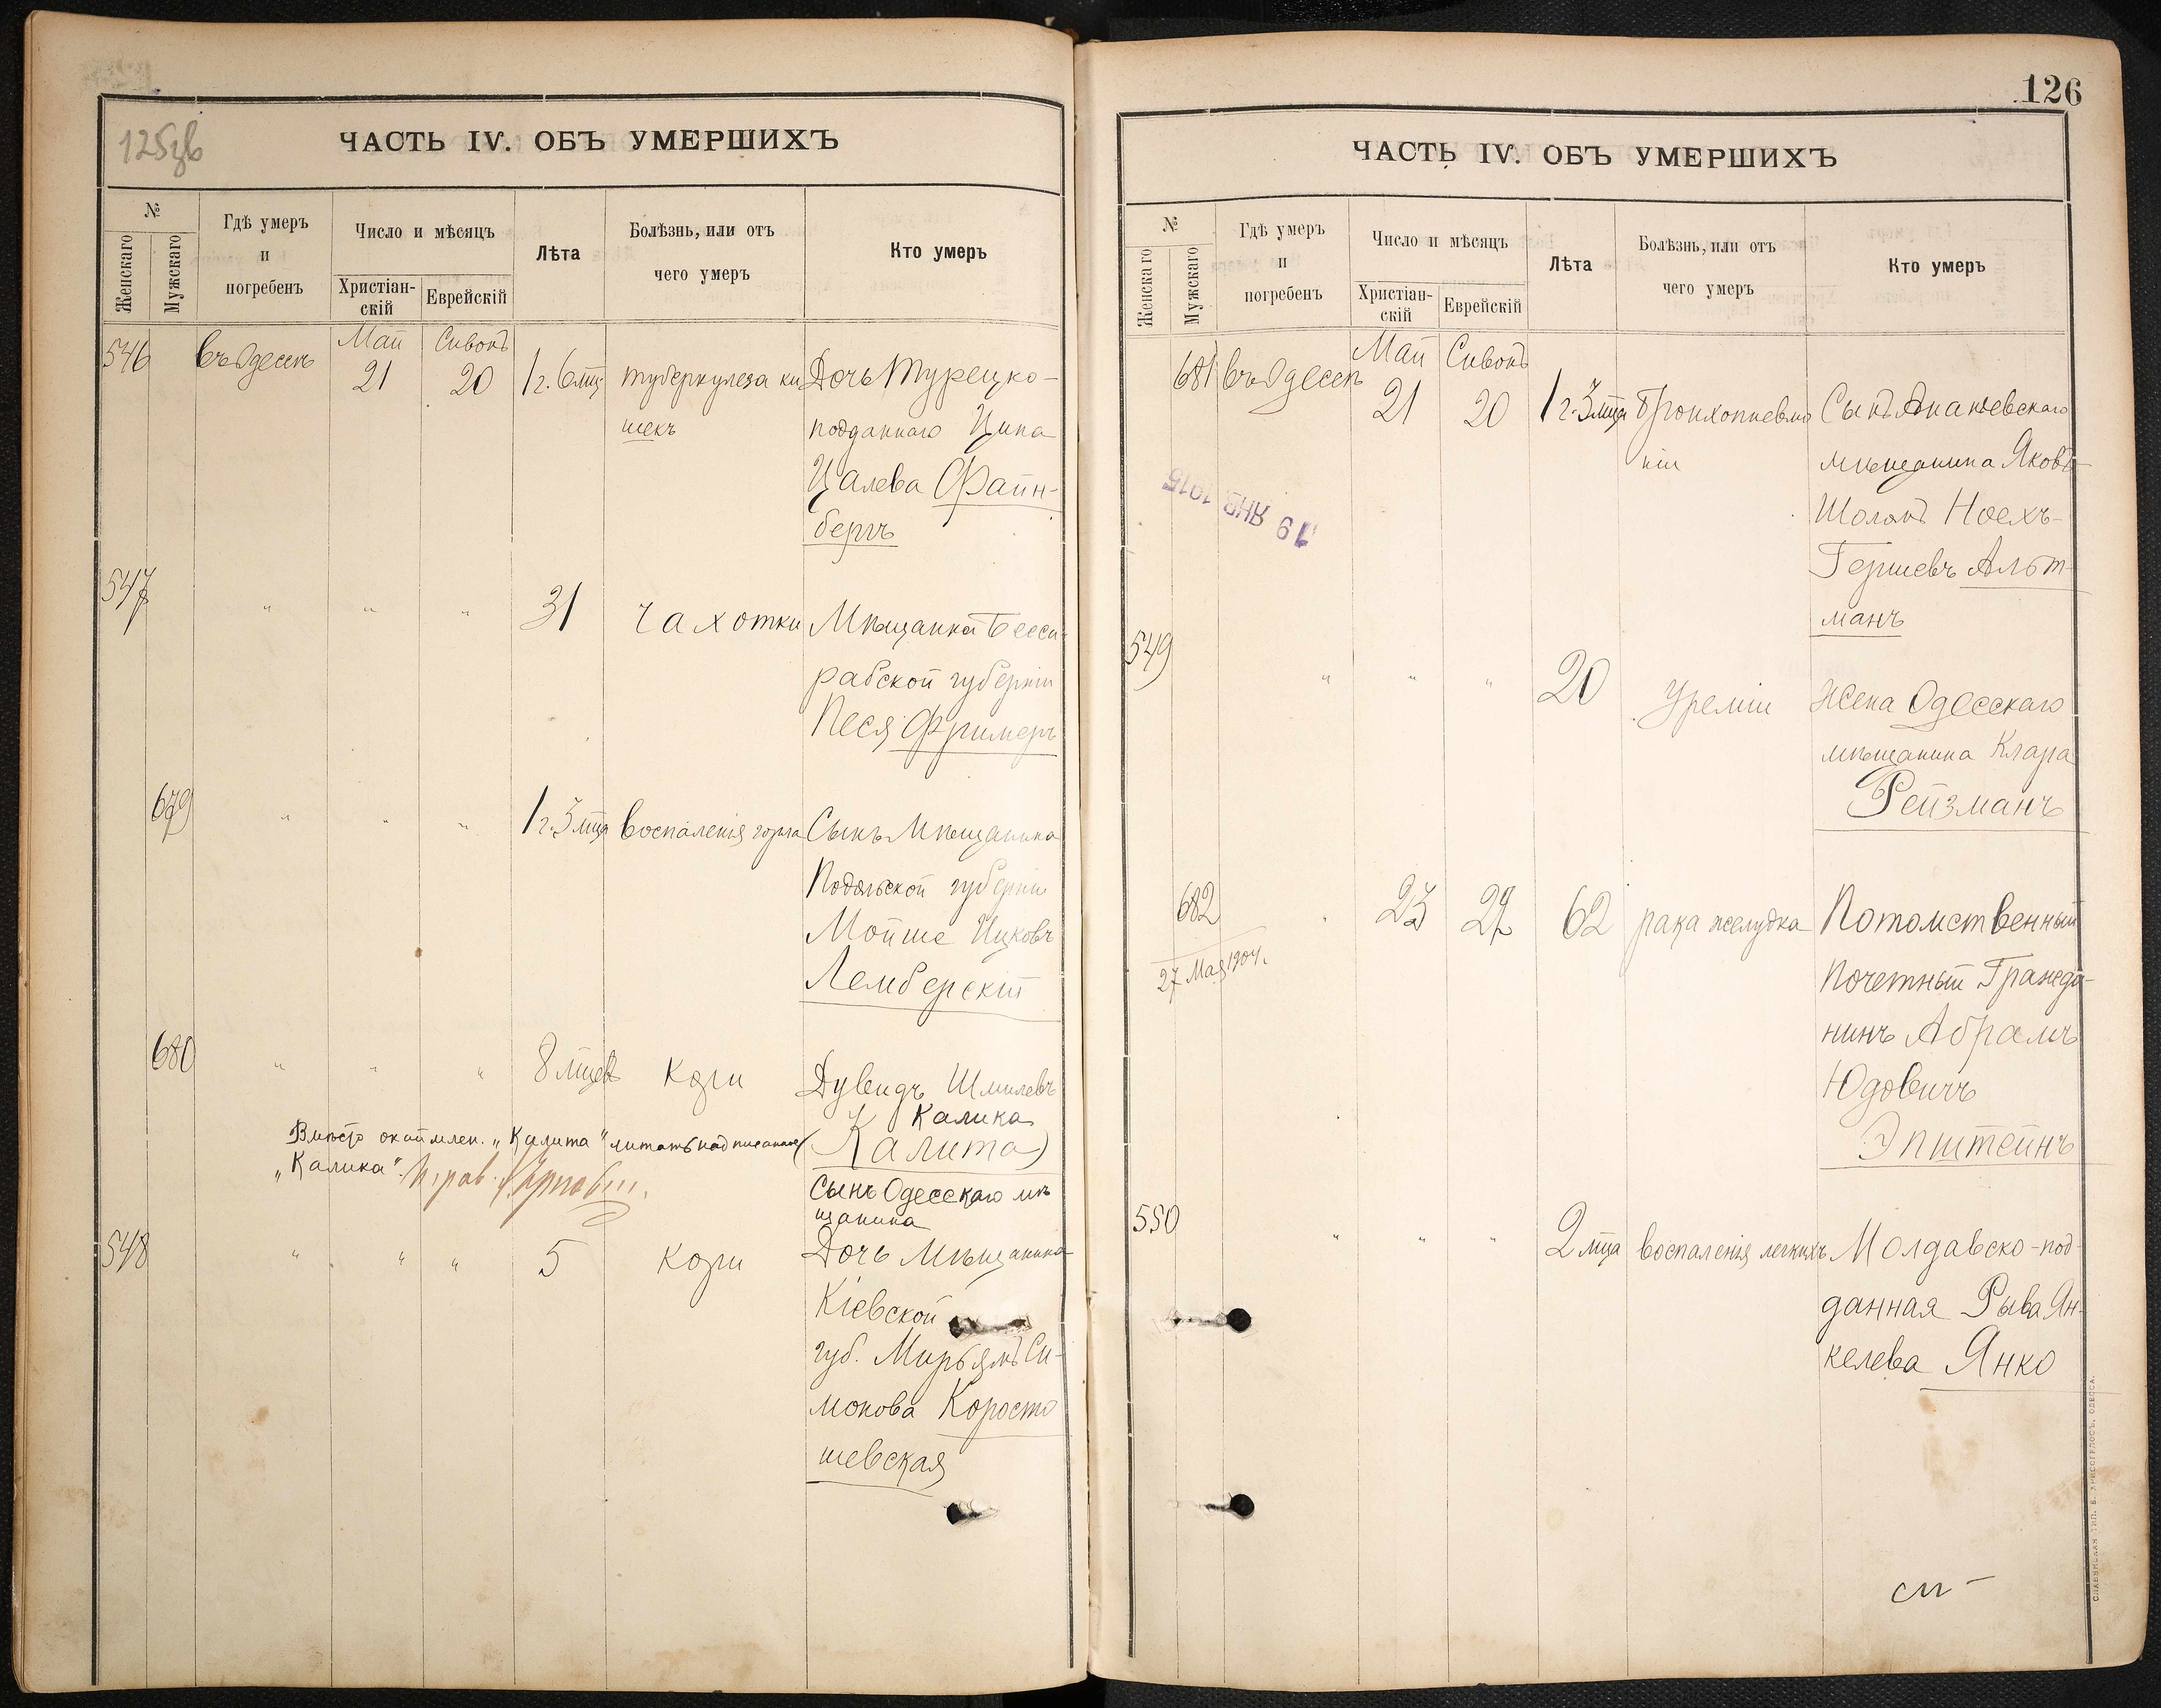 125зв
ЧАСТЬ IV. ОБЪ УМЕРШИХЪ
№
Женскаго
Мужскаго
Гдѣ умеръ
и
погребенъ
Число и мѣсяцъ
Христіан-
скій
Еврейскій
Лѣта
Болѣзнь, или отъ
чего умеръ
Кто умеръ
Май Сивонъ
546 въ Одессѣ 21 20 1 г. 6 мц. туберкулеза ки Дочь Турецко-
шекъ подданнаго Ципа
Цалева Файн-
бергъ
547 " " " 31 чахотки Мѣщанка Бесса-
рабской губерніи
Песя Фримеръ
679 " " " 1 г. 3 мца воспаленія горла Сынъ Мѣщанина
Подольской губерніи
Мойше Ицковъ
Лемберскій
680 " " " 8 мцевъ кори Дувидъ Шмилевъ
Калика
(Калита)
Вмѣсто окаймлен. „Калита" читать надписанное
„Калика".
Сынъ Одесскаго мѣ
щанина
548 " " " 5 кори Дочь Мѣщанина
Кіевской
губ. Мирьямъ Си-
монова Коросто
шевская
126
ЧАСТЬ IV. ОБЪ УМЕРШИХЪ
№
Женскаго
Мужскаго
Гдѣ умеръ
и
погребенъ
Число и мѣсяцъ
Христіан-
скій
Еврейскій
Лѣта
Болѣзнь, или отъ
чего умеръ
Кто умеръ
Май Сивонъ
681 въ Одессѣ 21 20 1 г. 3 мца бронхопневмо Сынъ Ананьевскаго
ніи мѣщанина Яковъ-
Шоломъ Ноехъ-
Гершевъ Альт-
манъ
19 ЯНВ 1915
549 " " " 20 Уреміи Жена Одесскаго
мѣщанина Клара
Рейзманъ
682 " 23 22 62 рака желудка Потомственный
27 Мая 1904 г.
Почетный Гражда-
нинъ Абрамъ
Юдовичъ
Эпштейнъ
550 " " " 2 мца воспаленія легкихъ Молдавско-под-
данная Рыва Ян-
келева Янко
СЛАВЯНСКАЯ ТИП. Е. ХРИСОГЕЛОСЪ, ОДЕССА.